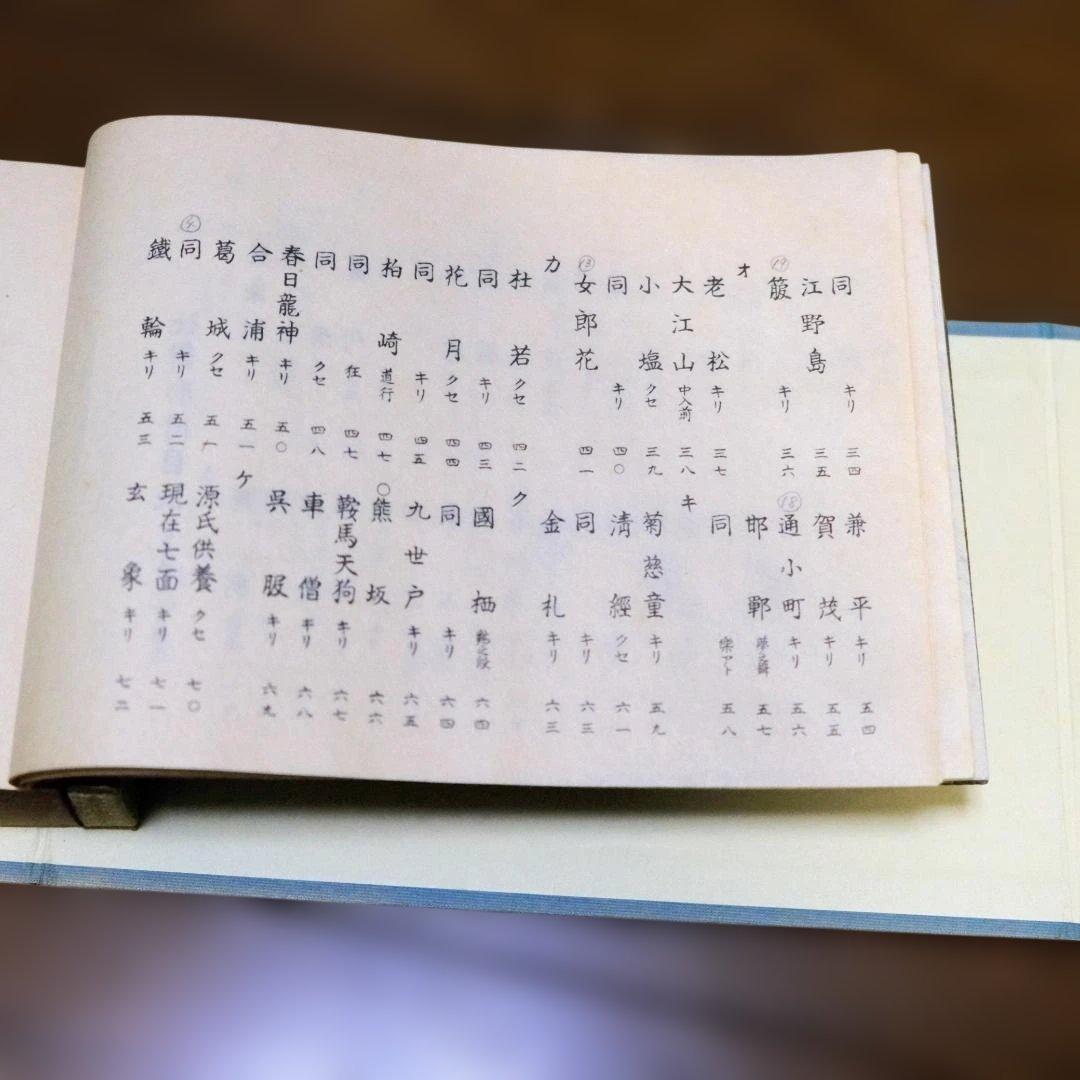 同 キリ 三四
江野島 三五
⑲ 箙 キリ 三六
オ
老松 キリ 三七
大江山 中入前 三八
小塩 クセ 三九
同 キリ 四〇
⑬ 女郎花 四一
カ
杜若 クセ 四二
同 キリ 四三
花月 クセ 四四
同 キリ 四五
柏崎 道行 四七
同 狂 四七
同 クセ 四八
春日龍神 キリ 五〇
合浦 キリ 五一
葛城 クセ 五一
同 キリ 五二
鐵輪 キリ 五三
兼平 キリ 五四
賀茂 キリ 五五
⑱ 通小町 キリ 五六
邯鄲 五七
同 楽アト 五八
キ
菊慈童 キリ 五九
清經 クセ 六一
同 キリ 六三
金札 キリ 六三
ク
國栖 六四
同 キリ 六四
九世戸 キリ 六五
〇熊坂 六六
鞍馬天狗 キリ 六七
車僧 キリ 六八
呉服 キリ 六九
ケ
源氏供養 クセ 七〇
現在七面 キリ 七一
玄象 キリ 七二